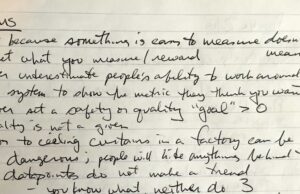 MS
because something is easy to measure doesn
et what you measure/reward mean
er underestimate people's ability to work around
system to show the metric they think you wan
er set a safety or quality "goal" > 0
ality is not a given
or to ceiling curtains in a factory can be
dangerous; people will hide anything behind
datapoints do not make a trend
- you know what, neither do 3